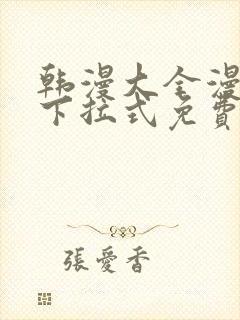 韩漫大全漫
下拉式免費
張愛香